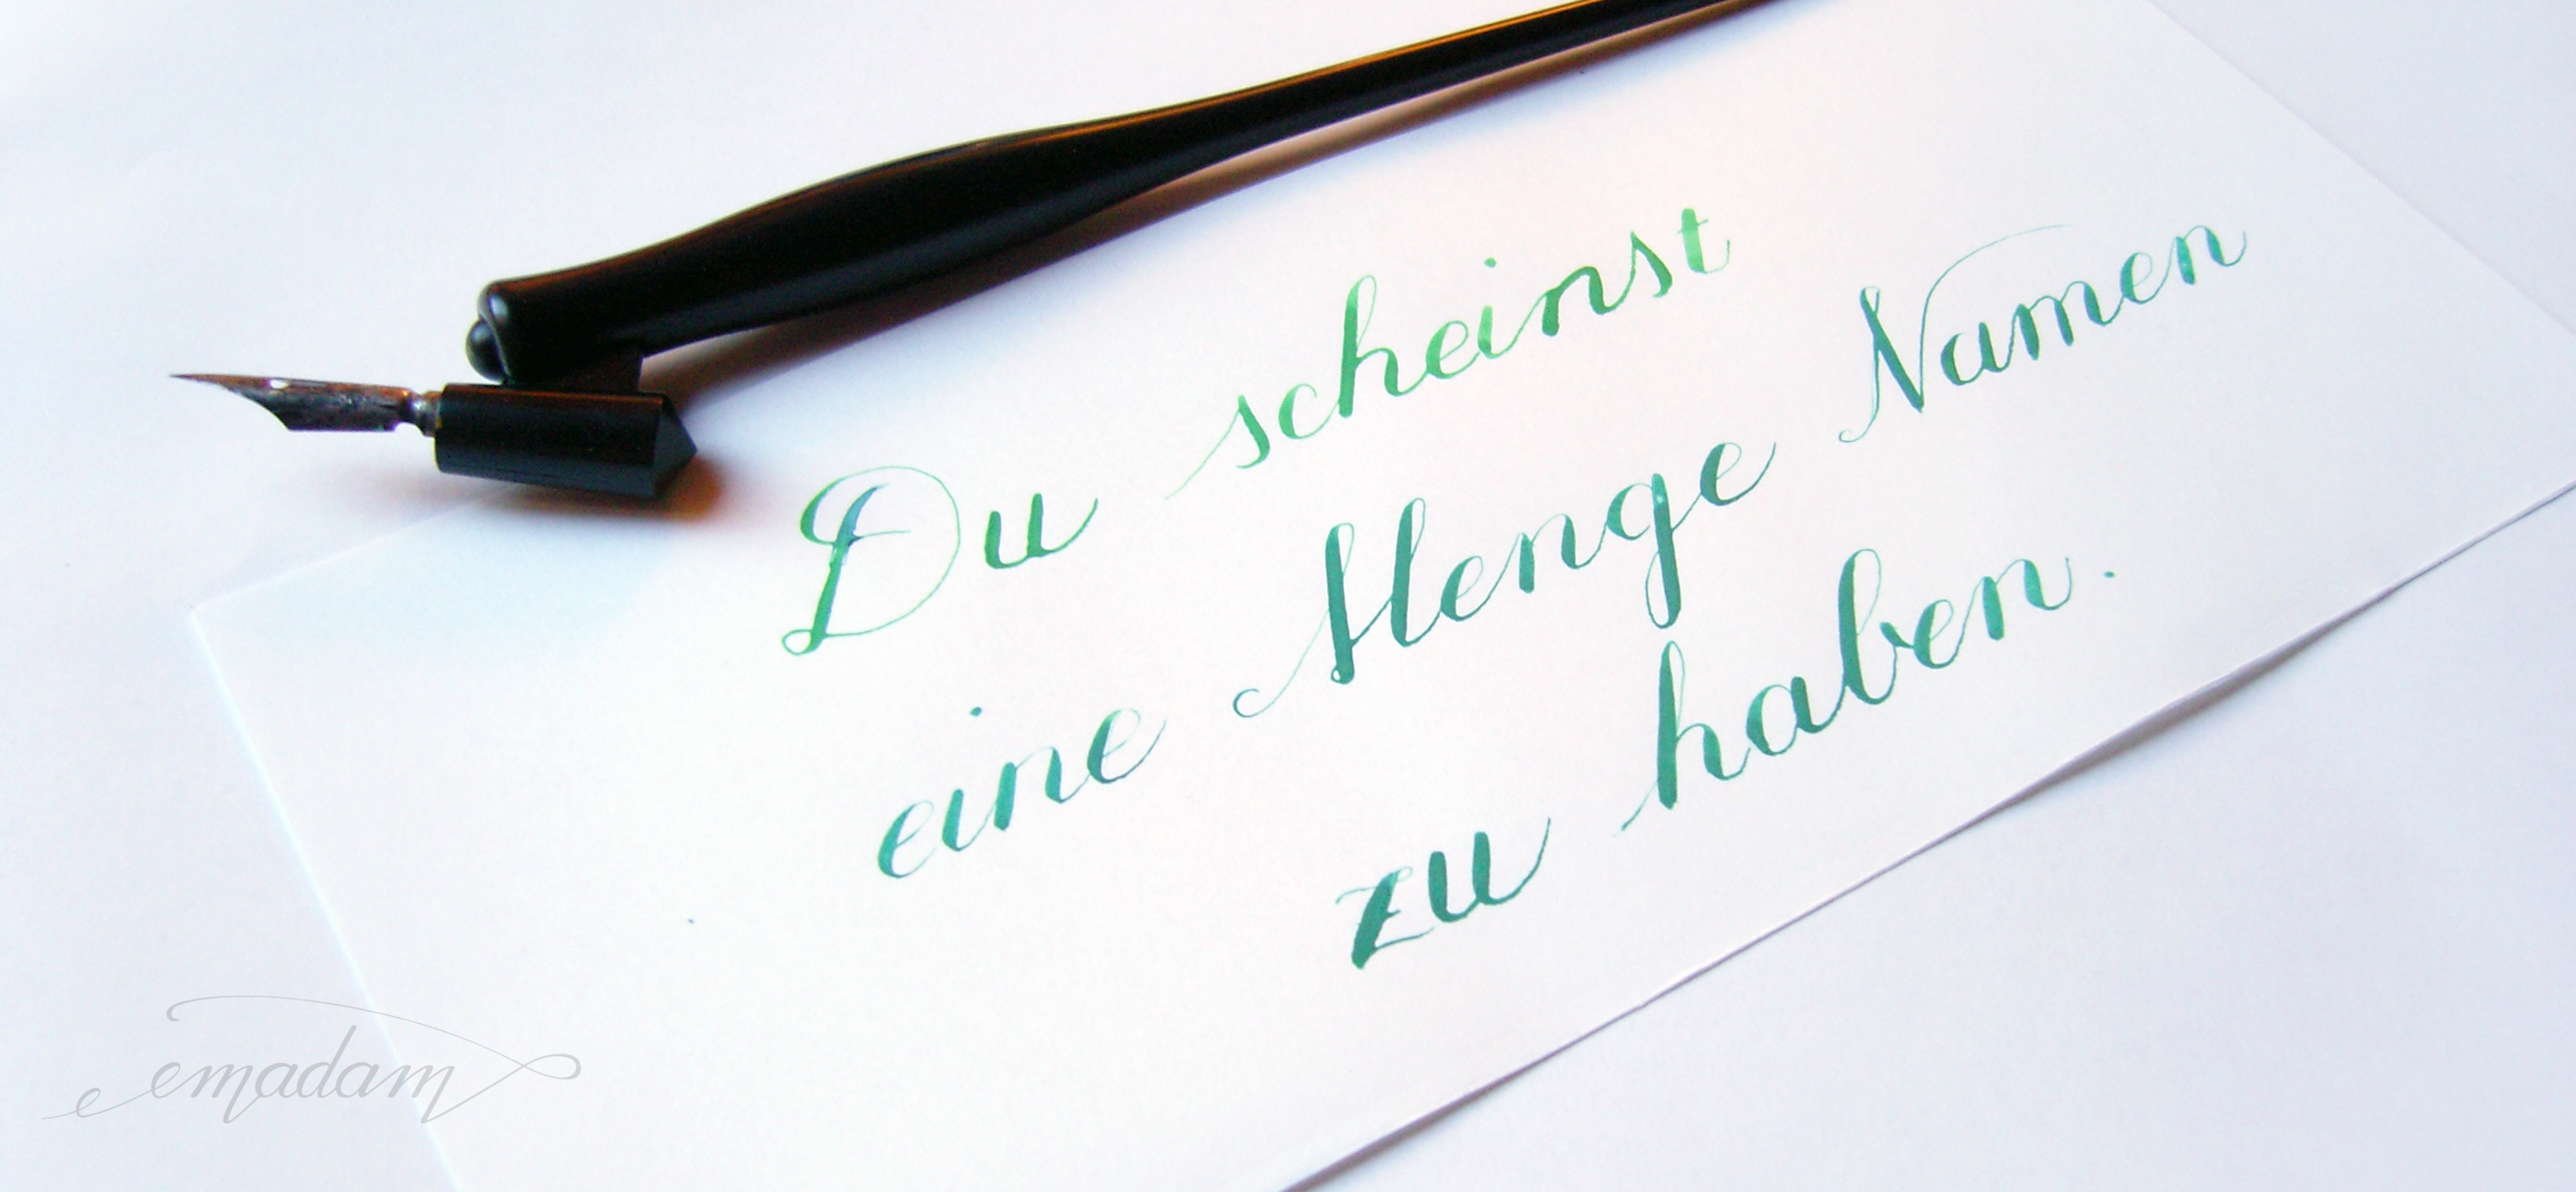 Du scheinst
eine Menge Namen
zu haben.
emadam